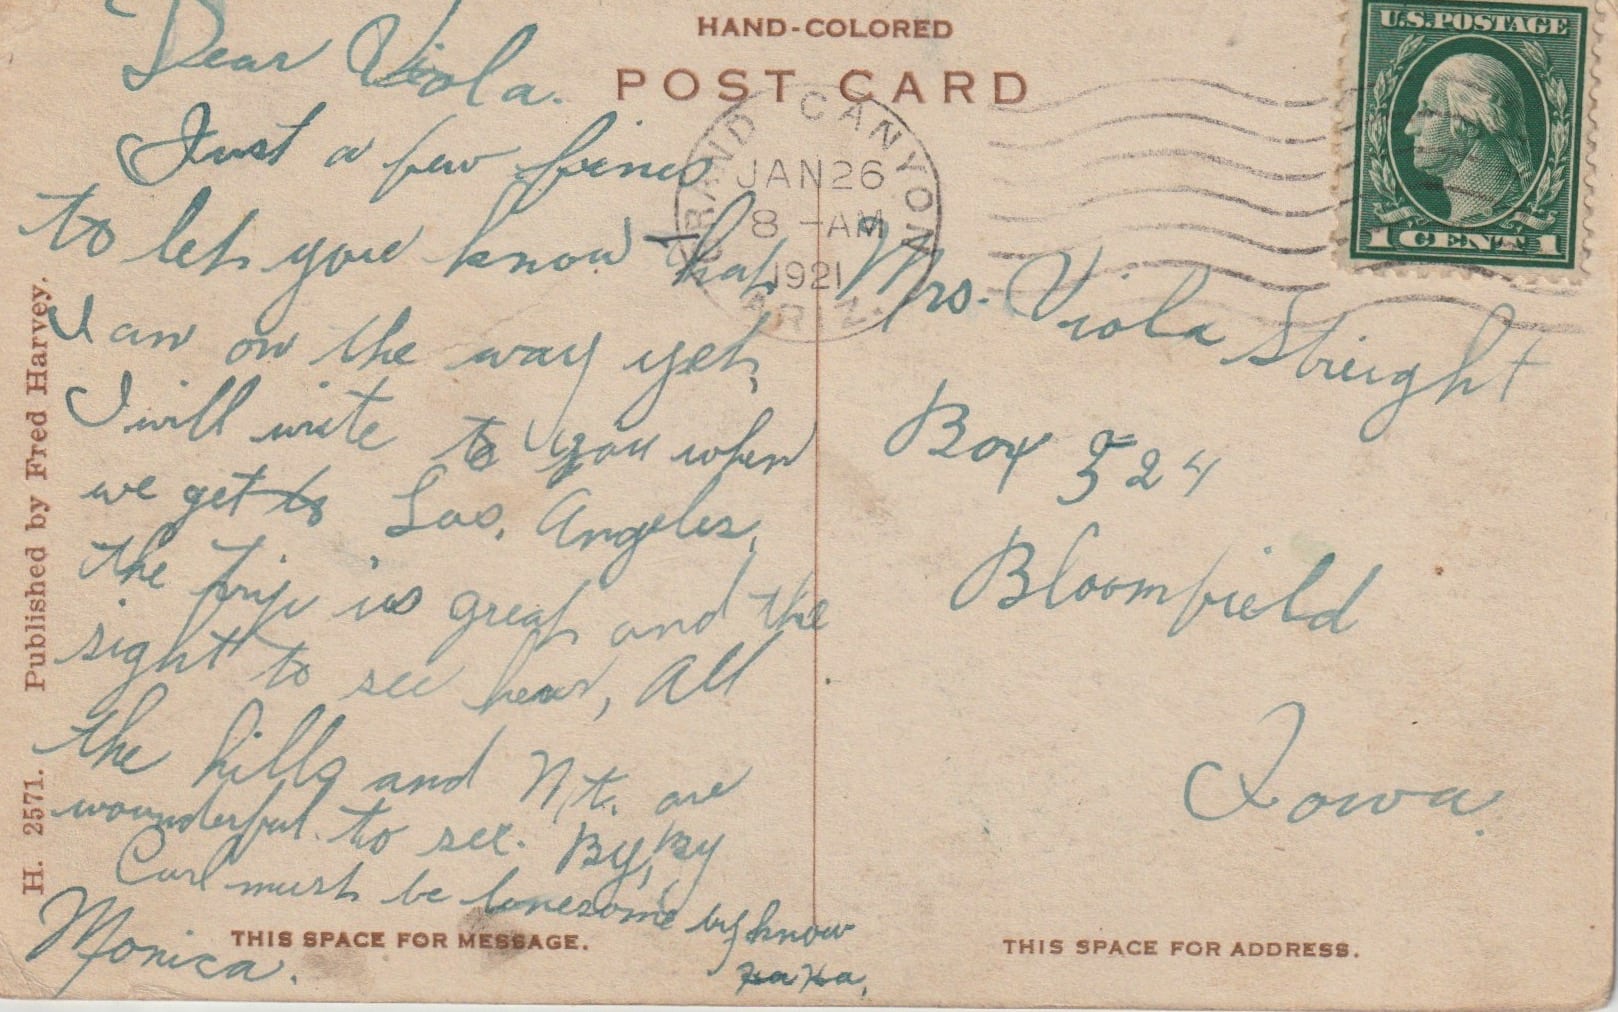 HAND-COLORED
POST CARD
U.S. POSTAGE
1 CENT 1
GRAND CANYON
JAN 26
8 -AM
1921
ARIZ.
Dear Viola.
Just a few lines
to let you know that
I am on the way yet,
I will write to you when
we get to Los, Angeles,
the trip is great and the
sight to see hear, All
the hills and Mt. are
wounderful to see. By, By
Carl must be lonesome by know
Ha Ha,
Monica.
Mrs. Viola Streight
Box 524
Bloomfield
Iowa.
THIS SPACE FOR MESSAGE.
THIS SPACE FOR ADDRESS.
H. 2571. Published by Fred Harvey.